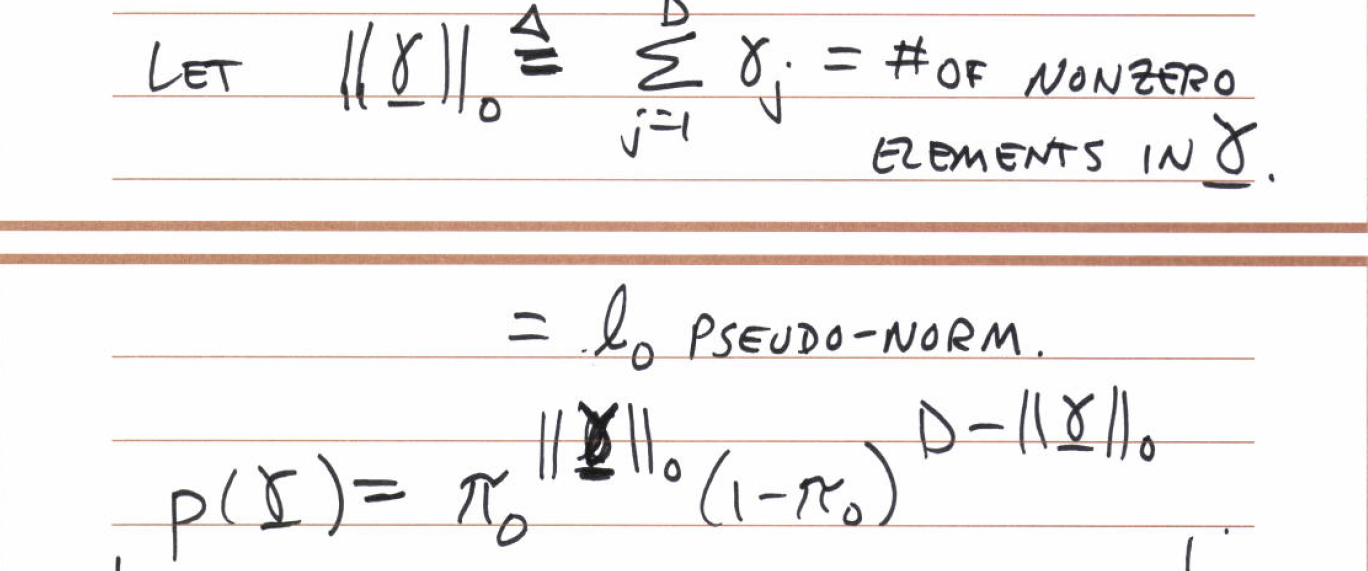 LET ||γ||₀ ≜ Σ_{j=1}^{D} γ_j = # OF NONZERO
ELEMENTS IN γ.
= l₀ PSEUDO-NORM.
p(γ) = π₀^{||γ||₀} (1-π₀)^{D-||γ||₀}